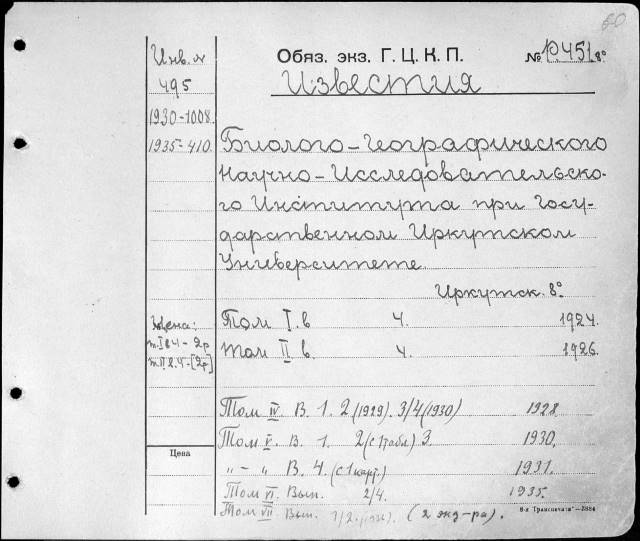 Обяз. экз. Г. Ц. К. П. № Р.451 8°
Известия
Инв. №
495
1930-1008.
1935-410.
Биолого-Географического
Научно-Исследовательско-
го Института при Госу-
дарственном Иркутском
Университете.
Иркутск. 8°
Цена:
т. I в 4 - 2р
т. II в. 4 - [2р]
Том I. в 4. 1924.
Том II в. 4. 1926.
Том IV. В. 1. 2 (1929). 3/4 (1930) 1928
Том V. В. 1. 2 (с 1 табл) 3. 1930.
„ - „ В. 4. (с 1 карт.) 1931.
Том VI. Вып. 2/4. 1935.
Том VII. Вып. 1/2. (2 экз-ра).
Цена
8-я Транспечати"—3884